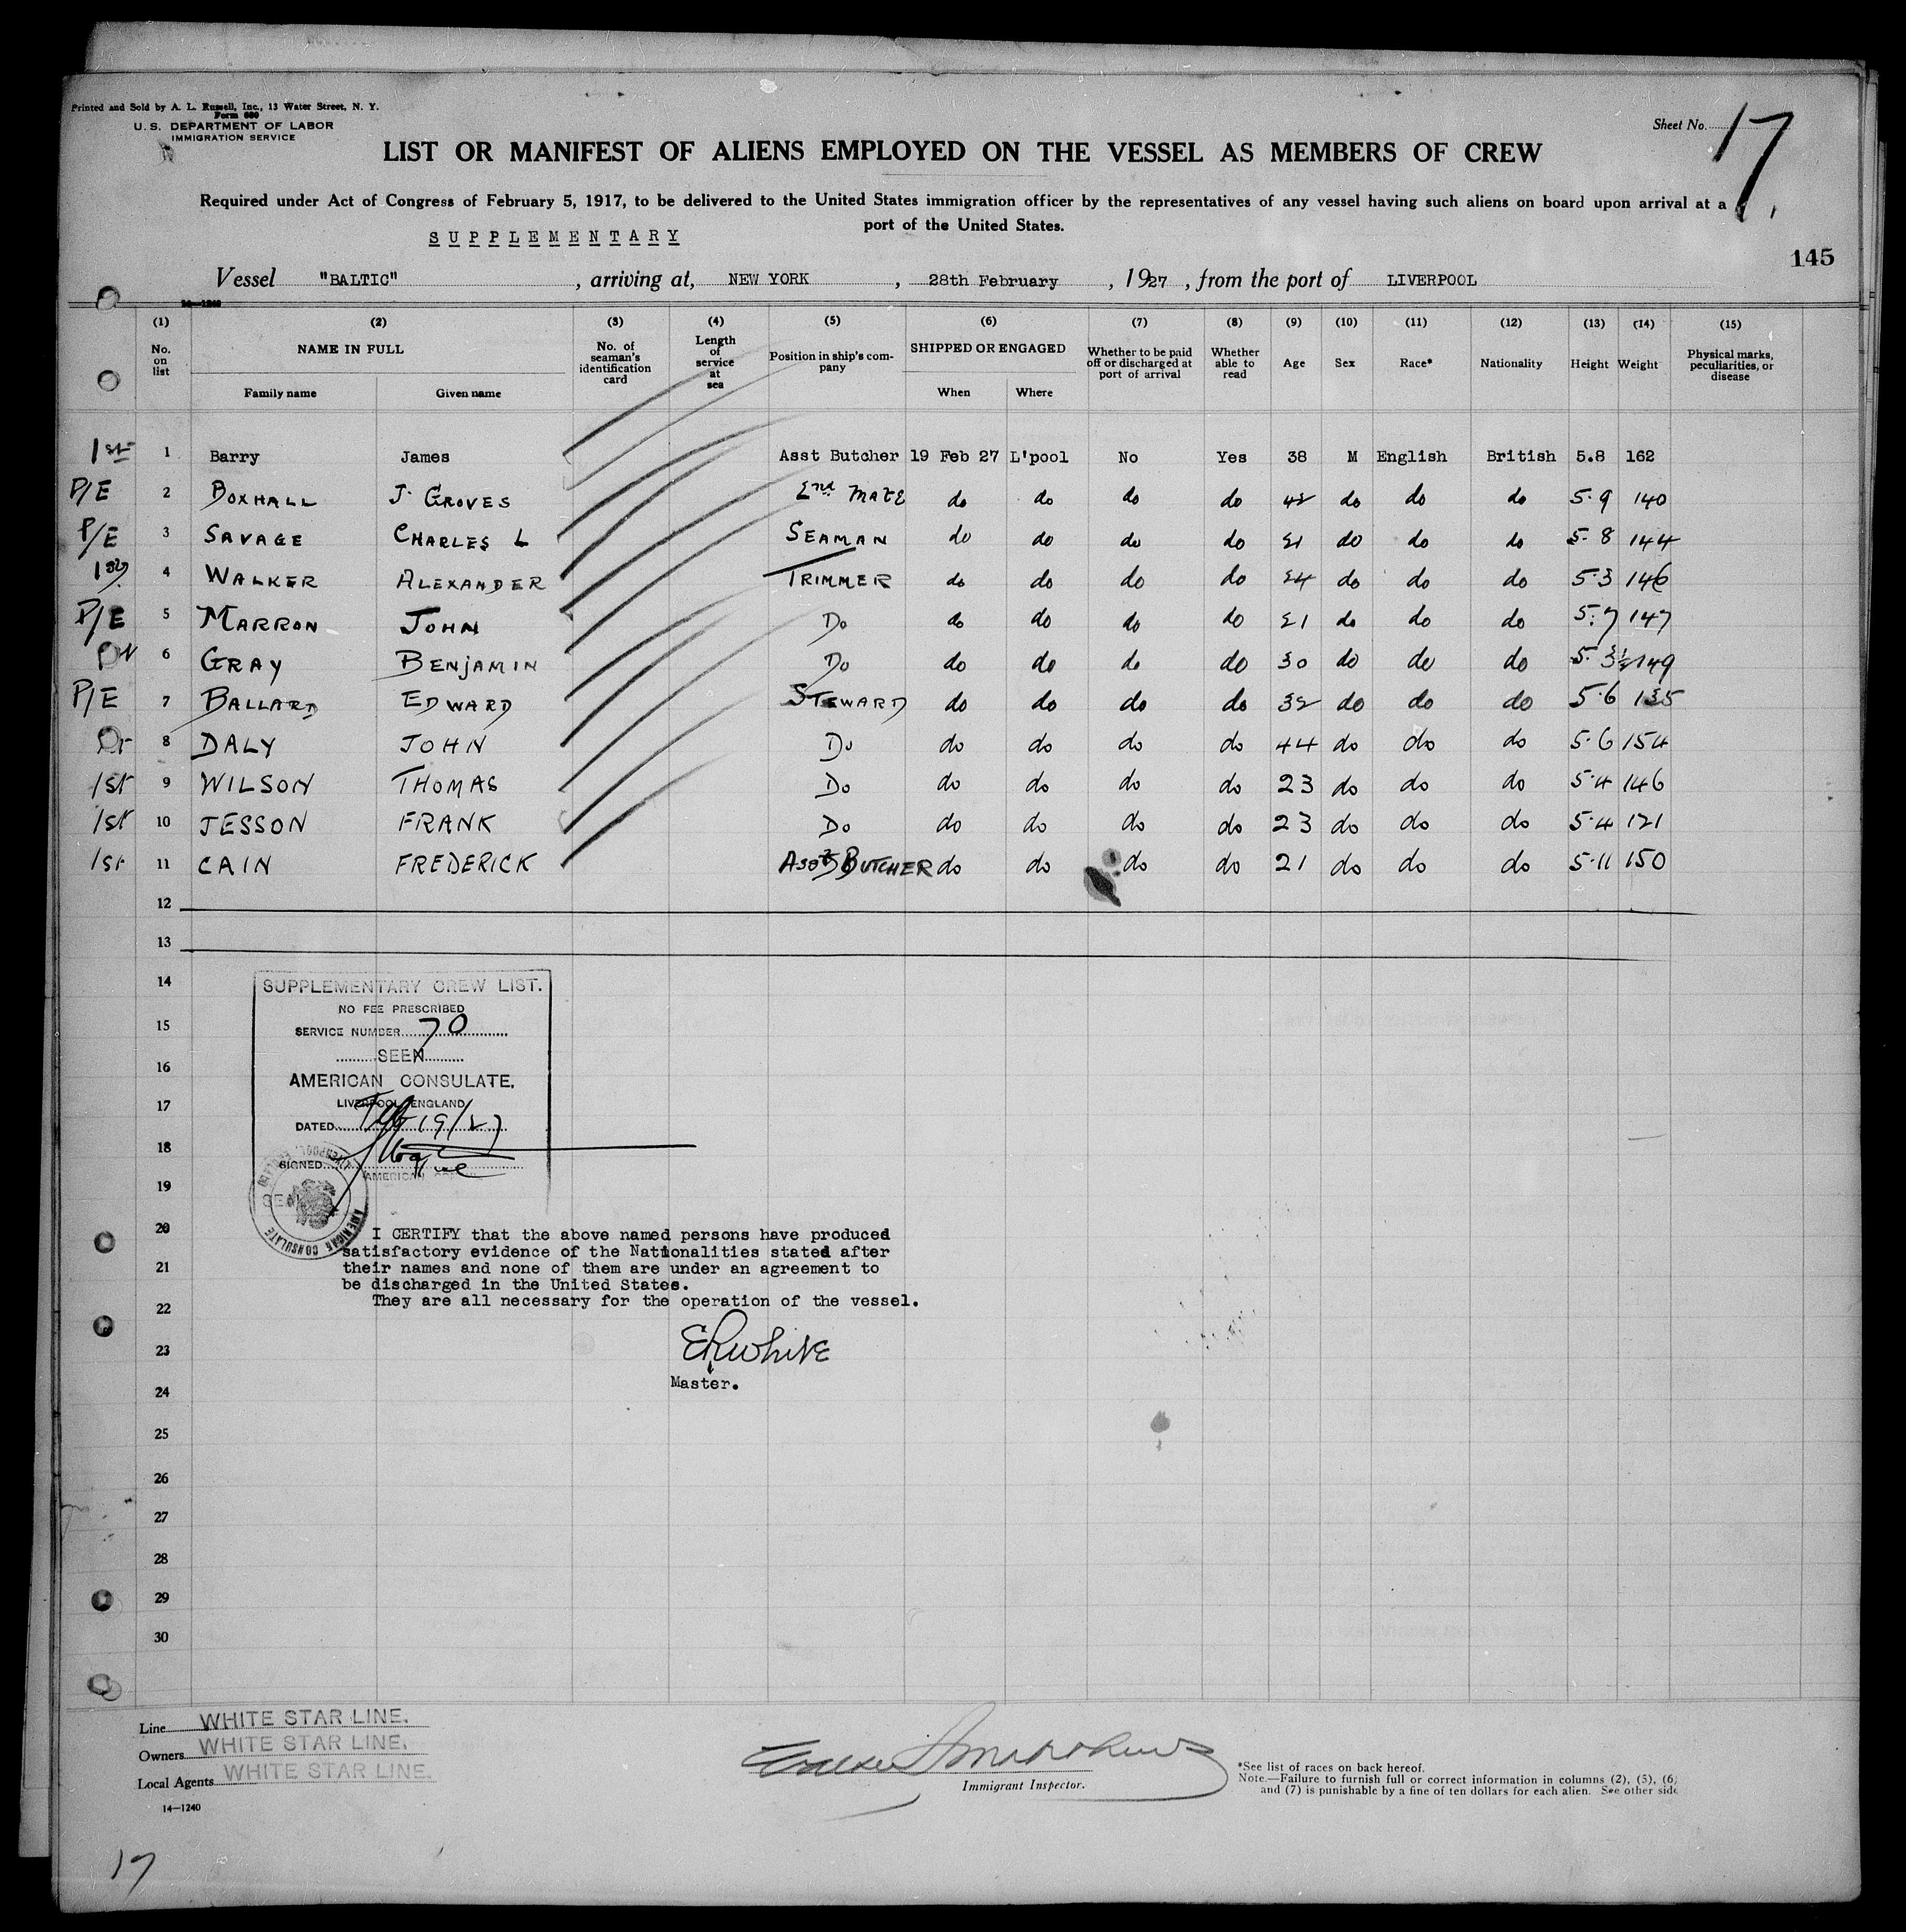 Printed and Sold by A. L. Russell, Inc., 13 Water Street, N. Y.
Form 680
U. S. DEPARTMENT OF LABOR
IMMIGRATION SERVICE
Sheet No. 17
LIST OR MANIFEST OF ALIENS EMPLOYED ON THE VESSEL AS MEMBERS OF CREW
Required under Act of Congress of February 5, 1917, to be delivered to the United States immigration officer by the representatives of any vessel having such aliens on board upon arrival at a
port of the United States.
SUPPLEMENTARY
145
Vessel "BALTIC", arriving at, NEW YORK, 28th February, 1927, from the port of LIVERPOOL
14—1240
(1) (2) (3) (4) (5) (6) (7) (8) (9) (10) (11) (12) (13) (14) (15)
No. on list NAME IN FULL No. of seaman's identification card Length of service at sea Position in ship's company SHIPPED OR ENGAGED Whether to be paid off or discharged at port of arrival Whether able to read Age Sex Race* Nationality Height Weight Physical marks, peculiarities, or disease
Family name Given name When Where
1st 1 Barry James Asst Butcher 19 Feb 27 L'pool No Yes 38 M English British 5.8 162
P/E 2 BOXHALL J. GROVES 2nd MATE do do do do 42 do do do 5.9 140
P/E 3 SAVAGE CHARLES L SEAMAN do do do do 21 do do do 5.8 144
1st 4 WALKER ALEXANDER TRIMMER do do do do 24 do do do 5.3 146
P/E 5 MARRON JOHN Do do do do do 21 do do do 5.7 147
6 GRAY BENJAMIN Do do do do do 30 do do do 5.3½ 149
P/E 7 BALLARD EDWARD STEWARD do do do do 32 do do do 5.6 135
8 DALY JOHN Do do do do do 44 do do do 5.6 154
1st 9 WILSON THOMAS Do do do do do 23 do do do 5.4 146
1st 10 JESSON FRANK Do do do do do 23 do do do 5.4 121
1st 11 CAIN FREDERICK ASST BUTCHER do do do do 21 do do do 5.11 150
12
13
14
15
16
17
18
19
20
21
22
23
24
25
26
27
28
29
30
SUPPLEMENTARY CREW LIST.
NO FEE PRESCRIBED
SERVICE NUMBER 70
SEEN
AMERICAN CONSULATE,
LIVERPOOL, ENGLAND
DATED Feb 19/27
SIGNED
AMERICAN
SEAL
AMERICAN CONSULATE
LIVERPOOL
I CERTIFY that the above named persons have produced
satisfactory evidence of the Nationalities stated after
their names and none of them are under an agreement to
be discharged in the United States.
They are all necessary for the operation of the vessel.
ERWhite
Master.
Line WHITE STAR LINE.
Owners WHITE STAR LINE.
Local Agents WHITE STAR LINE.
14—1240
Immigrant Inspector.
*See list of races on back hereof.
Note.—Failure to furnish full or correct information in columns (2), (5), (6)
and (7) is punishable by a fine of ten dollars for each alien. See other side
17